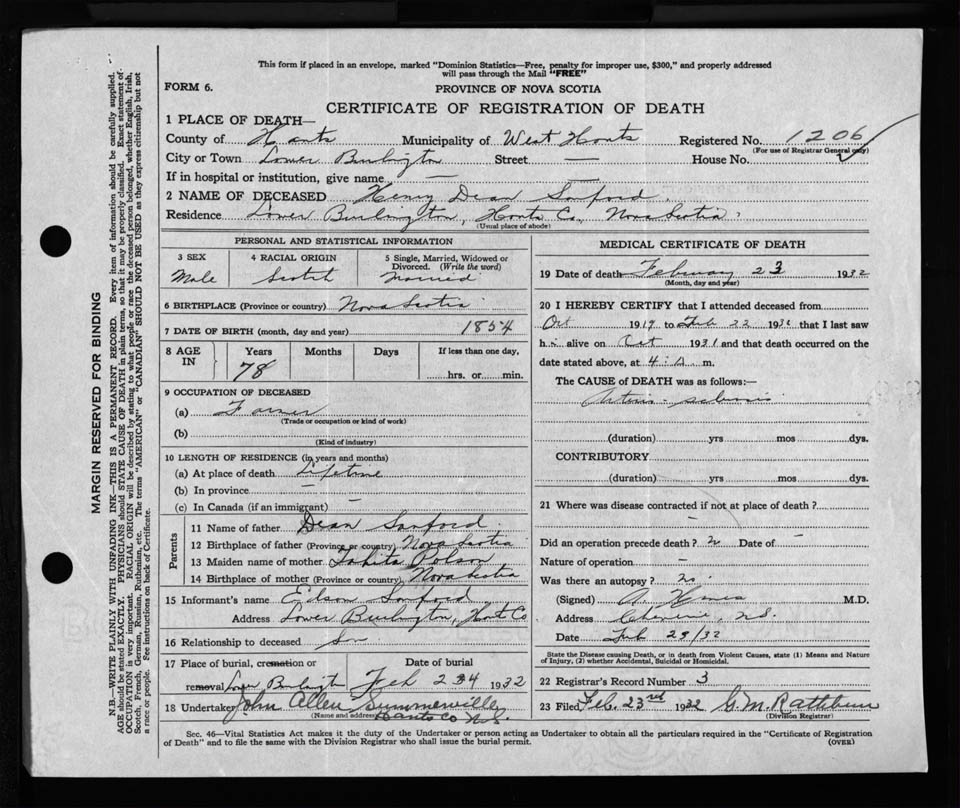 This form if placed in an envelope, marked "Dominion Statistics—Free, penalty for improper use, $300," and properly addressed
will pass through the Mail "FREE"
FORM 6.
PROVINCE OF NOVA SCOTIA
CERTIFICATE OF REGISTRATION OF DEATH
1 PLACE OF DEATH—
County of Hants Municipality of West Hants Registered No. 1206
(For use of Registrar General only)
City or Town Lower Burlington Street — House No.
If in hospital or institution, give name — —
2 NAME OF DECEASED Henry Dean Sanford
Residence Lower Burlington, Hants Co., Nova Scotia
(Usual place of abode)
PERSONAL AND STATISTICAL INFORMATION
3 SEX 4 RACIAL ORIGIN 5 Single, Married, Widowed or
Divorced. (Write the word)
Male Scotch Married
6 BIRTHPLACE (Province or country) Nova Scotia
7 DATE OF BIRTH (month, day and year) 1854
8 AGE IN Years Months Days If less than one day,
78 hrs. or min.
9 OCCUPATION OF DECEASED
(a) Farmer
(Trade or occupation or kind of work)
(b)
(Kind of industry)
10 LENGTH OF RESIDENCE (in years and months)
(a) At place of death Lifetime
(b) In province —
(c) In Canada (if an immigrant) —
Parents
11 Name of father Dean Sanford
12 Birthplace of father (Province or country) Nova Scotia
13 Maiden name of mother Polson
14 Birthplace of mother (Province or country) Nova Scotia
15 Informant's name Sanford
Address Lower Burlington, Hants Co
16 Relationship to deceased Son
17 Place of burial, cremation or Date of burial
removal Lower Burlington Feb 1932
18 Undertaker John Allen Summerville
(Name and address) Hants Co N.S.
MEDICAL CERTIFICATE OF DEATH
19 Date of death February 23 1932
(Month, day and year)
20 I HEREBY CERTIFY that I attended deceased from
Oct 1919 to Feb 22 1932 that I last saw
h alive on Oct 1931 and that death occurred on the
date stated above, at 4 m.
The CAUSE of DEATH was as follows:—
Arterio-sclerosis
(duration) yrs mos dys.
CONTRIBUTORY
(duration) yrs mos dys.
21 Where was disease contracted if not at place of death?
—
Did an operation precede death? Date of —
Nature of operation —
Was there an autopsy? no
(Signed) M.D.
Address Cheverie, N.S.
Date Feb /32
State the Disease causing Death, or in death from Violent Causes, state (1) Means and Nature
of Injury, (2) whether Accidental, Suicidal or Homicidal.
22 Registrar's Record Number 3
23 Filed Feb. 23rd 1932 G.M. Rathburn
(Division Registrar)
Sec. 46—Vital Statistics Act makes it the duty of the Undertaker or person acting as Undertaker to obtain all the particulars required in the "Certificate of Registration
of Death" and to file the same with the Division Registrar who shall issue the burial permit. (OVER)
MARGIN RESERVED FOR BINDING
N.B.—WRITE PLAINLY WITH UNFADING INK—THIS IS A PERMANENT RECORD. Every item of information should be carefully supplied.
AGE should be stated EXACTLY. PHYSICIANS should STATE CAUSE OF DEATH in plain terms, so that it may be properly classified. Exact statement of
OCCUPATION is very important. RACIAL ORIGIN will be described by stating to what people or race the deceased person belonged, whether English, Irish,
Scotch, French, German, Russian, Ruthenian, etc. The terms "AMERICAN" or "CANADIAN" SHOULD NOT BE USED as they express citizenship but not
a race or people. Fee instructions on back of Certificate.